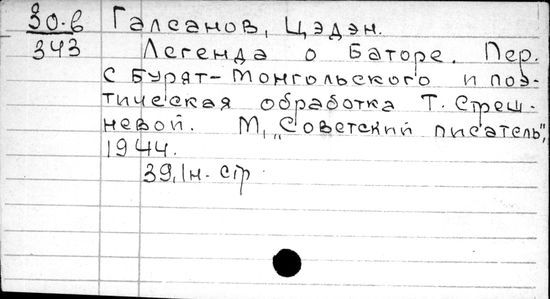 30-6 Галсанов, Цэдэн.
343 Легенда о Баторе. Пер.
с Бурят-Монгольского и поэ-
тическая обработка Т. Стреш-
невой. М, „Советский писатель",
1944.
39,1н. стр